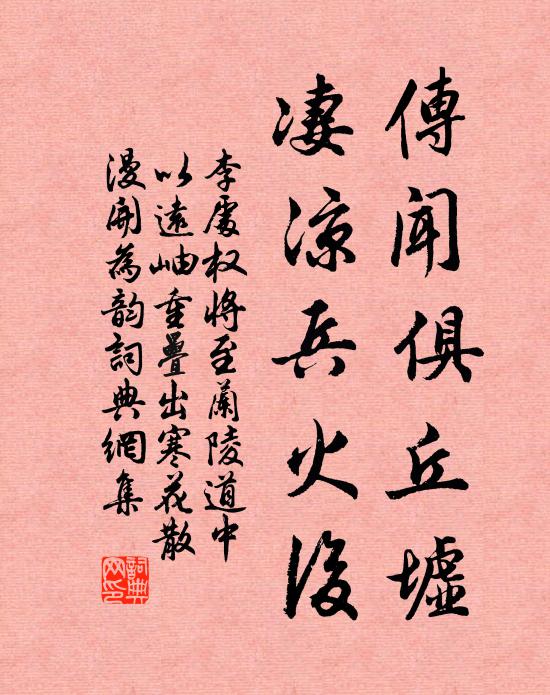 傳聞俱丘墟
凄涼兵火後
李處权將至蘭陵道中
以遠岫重疊出寒花散
漫開為韵詞典網集
詞典網印